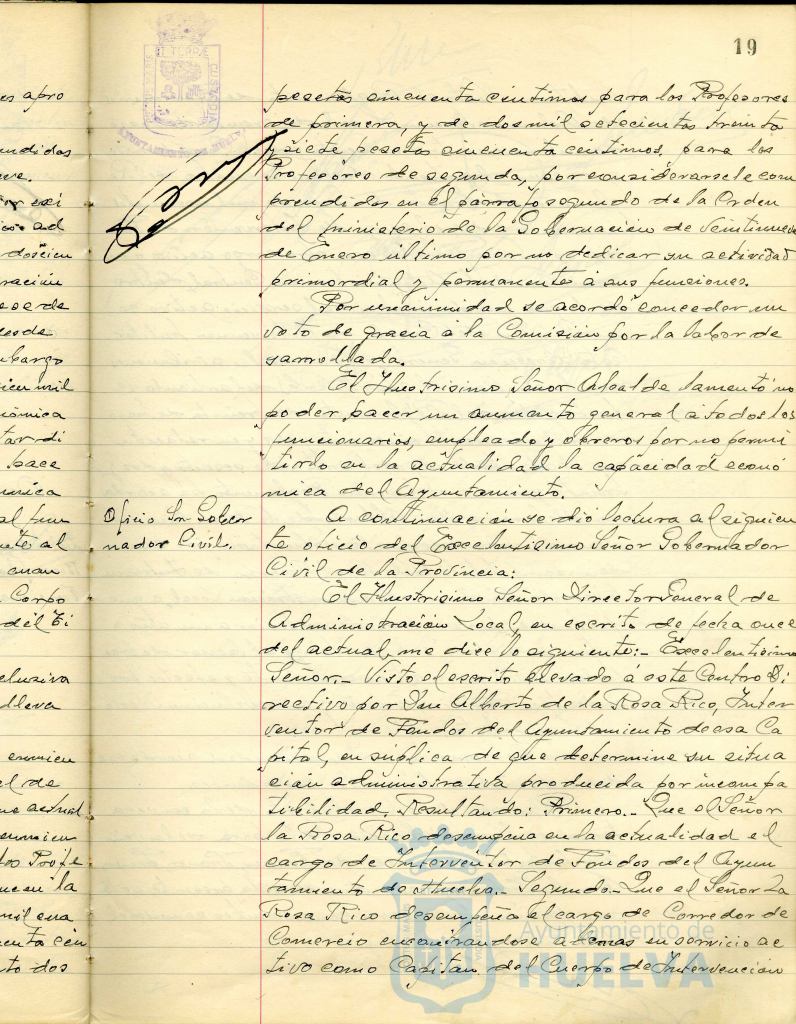 19
PORTUS MARIS
ET TERRÆ
CUSTODIA
AYUNTAMIENTO DE HUELVA
es apro
endidos
ve.
or exi
icos ad
doscien
ración
ese de
desde
mbargo
cien mil
nómica
tar di
hace
ómica
al fun
nte, al
cuan
Corpo
del Ti
clusiva
lleva
ennien
el de
ue actual
ennien
los Profe
uesen la
mil cua
enta cén
to dos
pesetas cincuenta céntimos para los Profesores
de primera, y de dos mil setecientas treinta
y siete pesetas cincuenta centimos, para los
Profesores de segunda, por considerarsele com
prendidos en el párrafo segundo de la Orden
del ministerio de la Gobernación de veintinueve
de Enero último por no dedicar su actividad
primordial y permanente á sus funciones.
Por unanimidad se acordó conceder un
voto de gracia á la Comisión por la labor de
sarrollada.
El Ilustrisimo Señor Alcalde lamentó no
poder hacer un aumento general á todos los
funcionarios, empleado y obreros por no permi
tirlo en la actualidad la capacidad econó
mica del Ayuntamiento.
Oficio Sr. Gober
nador Civil.
A continuación se dió lectura al siguien
te oficio del Excelentisimo Señor Gobernador
Civil de la Provincia:
El Ilustrisimo Señor Director General de
Administración Local, en escrito de fecha once
del actual, me dice lo siguiente:- Excelentisimo
Señor.- Visto el escrito elevado á este Centro Di
rectivo por Don Alberto de la Rosa Rico, Inter
ventor de Fondos del Ayuntamiento de esa Ca
pital, en súplica de que determine su situa
ción administrativa producida por incompa
tibilidad, Resultando: Primero.- Que el Señor
la Rosa Rico desempeña en la actualidad el
cargo de Interventor de Fondos del Ayun
tamiento de Huelva.- Segundo- Que el Señor La
Rosa Rico desempeña el cargo de Corredor de
Comercio encontrandose ademas en servicio ac
tivo como Capitan del Cuerpo de Intervención
Ayuntamiento de
HUELVA